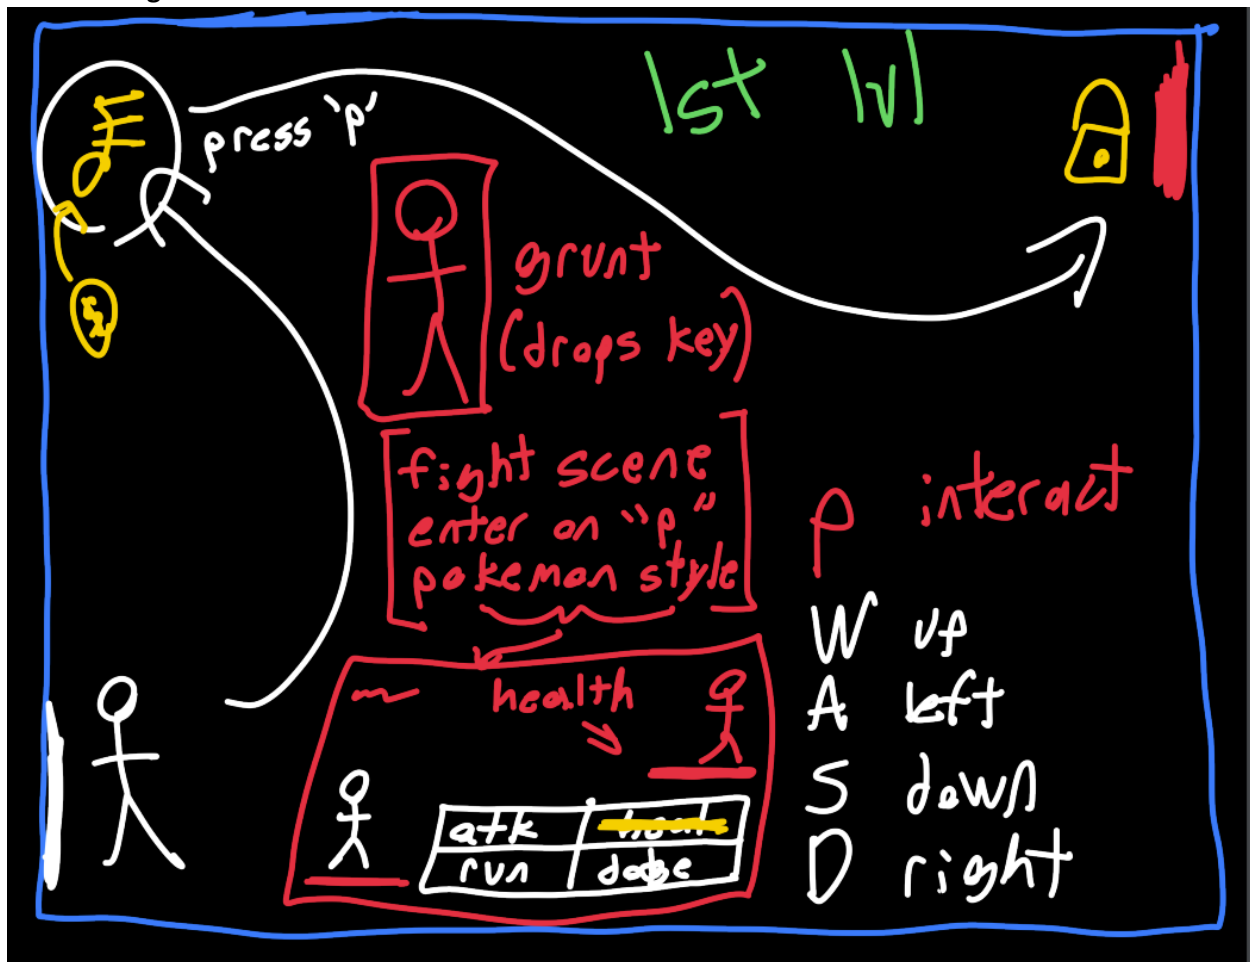 1st lvl
press "p"
grunt
(drops key)
fight scene
enter on "p"
pokemon style
health
atk
run dodge
P interact
W up
A left
S down
D right
$